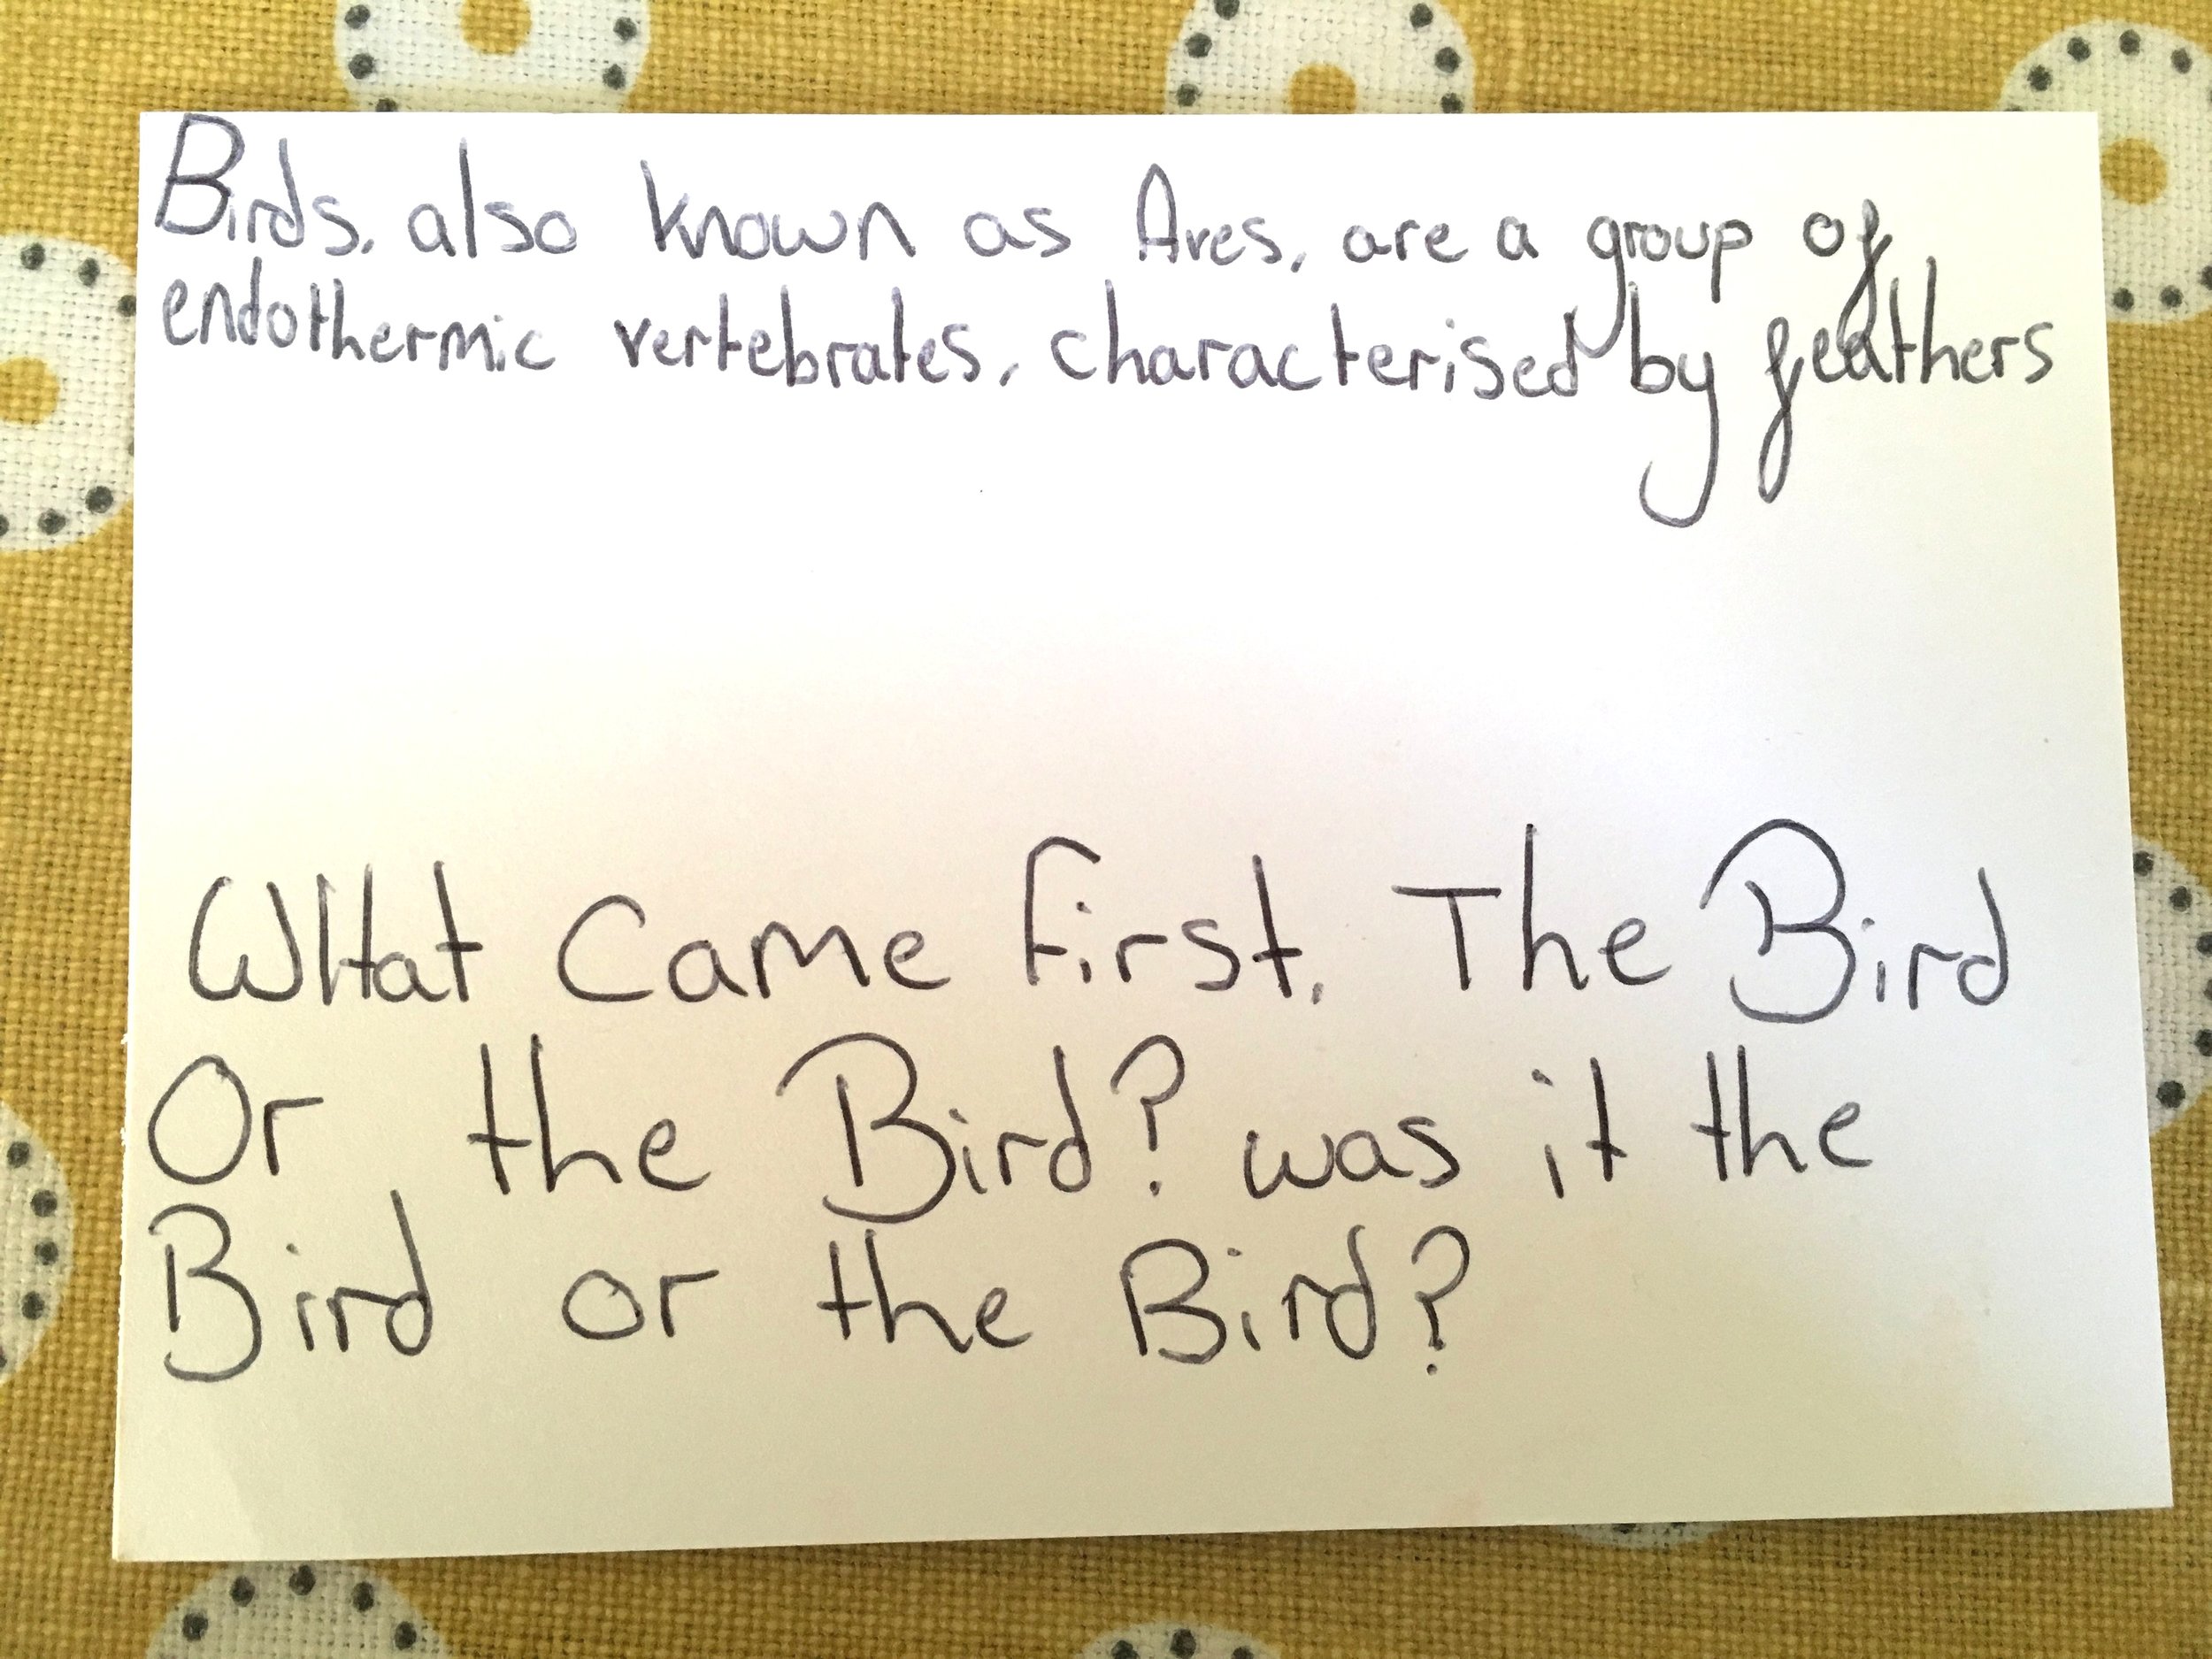 Birds, also known as Aves, are a group of
endothermic vertebrates, characterised by feathers
WHat Came First, The Bird
Or the Bird? was it the
Bird or the Bird?